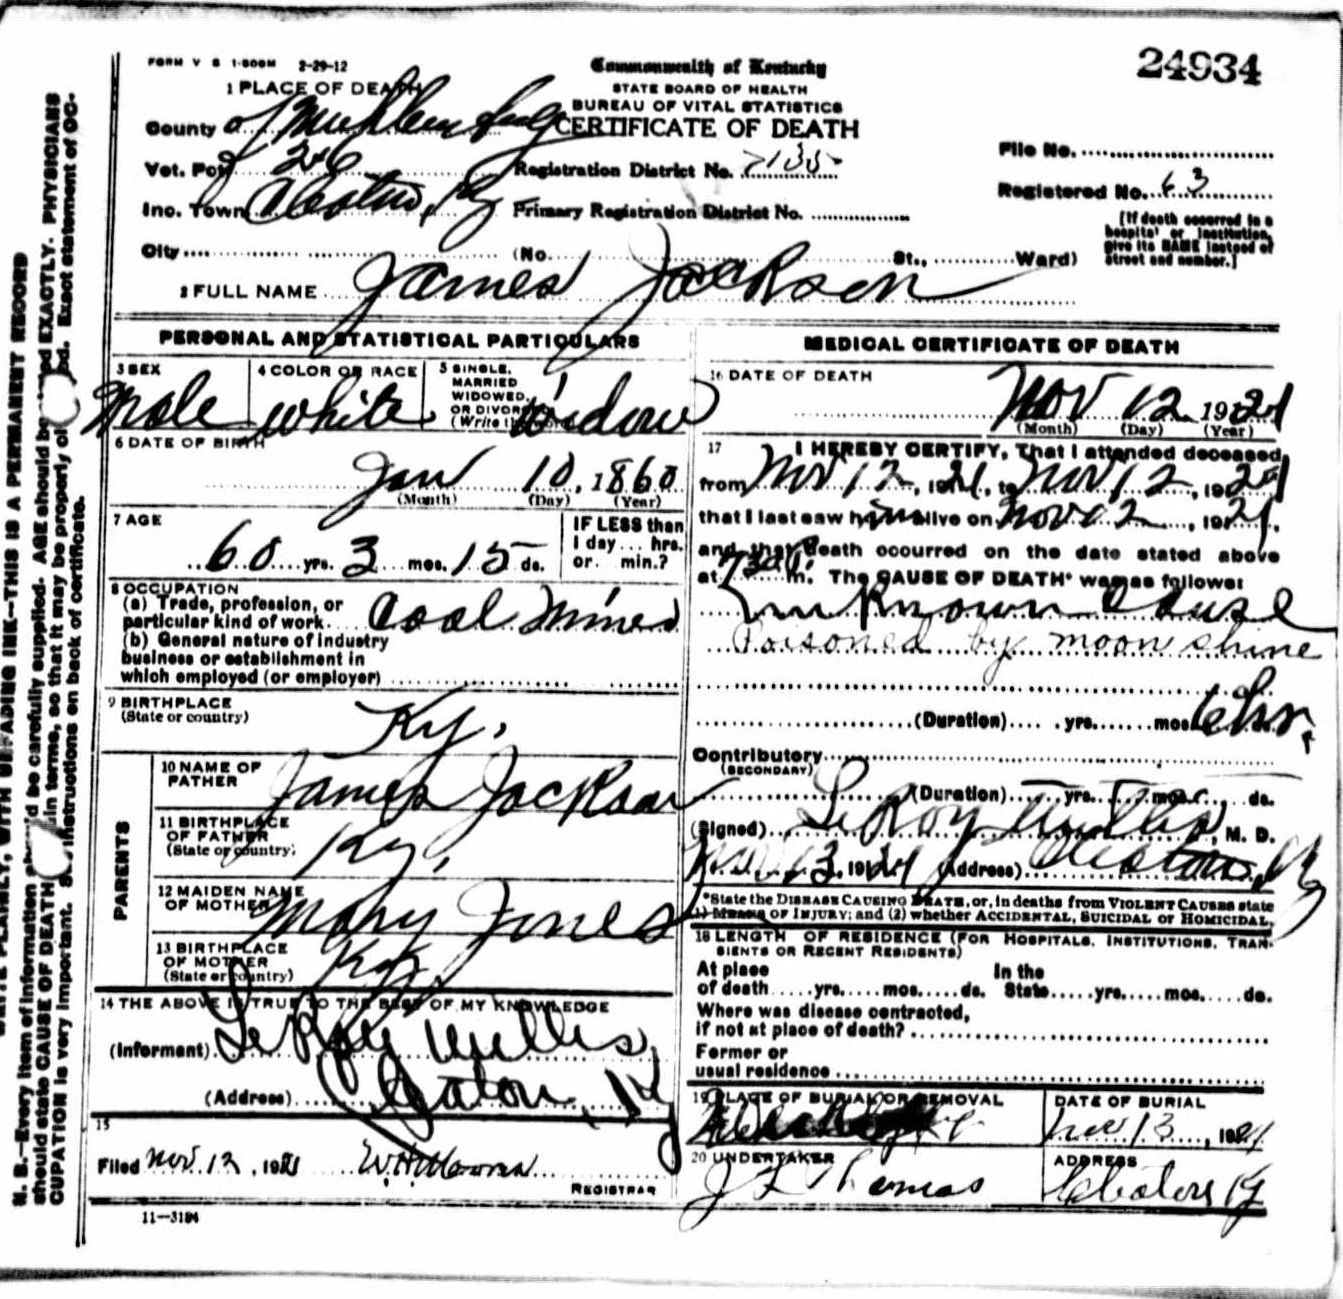 FORM V S 1-500M 2-29-12
24934
Commonwealth of Kentucky
STATE BOARD OF HEALTH
BUREAU OF VITAL STATISTICS
CERTIFICATE OF DEATH
1 PLACE OF DEATH
County of Muhlenberg
Vot. Pct 26
Inc. Town Cleaton, Ky
City (No. St., Ward)
Registration District No. 7135
Primary Registration District No.
File No.
Registered No. 63
[If death occurred in a hospital or institution, give its NAME instead of street and number.]
2 FULL NAME James Jackson
PERSONAL AND STATISTICAL PARTICULARS
3 SEX
Male
4 COLOR OR RACE
white
5 SINGLE, MARRIED WIDOWED, OR DIVORCED
(Write the word)
widow
6 DATE OF BIRTH
Jan 10, 1860
(Month) (Day) (Year)
7 AGE
60 yrs. 3 mos. 15 ds.
IF LESS than
1 day ... hrs.
or min.?
8 OCCUPATION
(a) Trade, profession, or
particular kind of work Coal Miner
(b) General nature of industry
business or establishment in
which employed (or employer)
9 BIRTHPLACE
(State or country)
Ky,
PARENTS
10 NAME OF FATHER
James Jackson
11 BIRTHPLACE OF FATHER
(State or country)
Ky,
12 MAIDEN NAME OF MOTHER
Mary Jones
13 BIRTHPLACE OF MOTHER
(State or country)
Ky
14 THE ABOVE IS TRUE TO THE BEST OF MY KNOWLEDGE
(Informant) LeRoy Willis
(Address) Cleaton, Ky
15
Filed Nov 12, 1921 W.H. Moores
REGISTRAR
11-3184
MEDICAL CERTIFICATE OF DEATH
16 DATE OF DEATH
Nov 12 1921
(Month) (Day) (Year)
17 I HEREBY CERTIFY, That I attended deceased
from Nov 12, 1921, to Nov 12, 1921
that I last saw him alive on Nov 12, 1921,
and that death occurred on the date stated above
at 730 P. m. The CAUSE OF DEATH* was as follows:
unknown cause
Poisoned by moon shine
(Duration) yrs. mos. 6 hr.
Contributory
(SECONDARY)
(Duration) yrs. mos. ds.
(Signed) LeRoy Willis, M. D.
Nov 13, 1921 (Address) Cleaton, Ky
*State the DISEASE CAUSING DEATH, or, in deaths from VIOLENT CAUSES state
(1) MEANS OF INJURY; and (2) whether ACCIDENTAL, SUICIDAL or HOMICIDAL.
18 LENGTH OF RESIDENCE (FOR HOSPITALS, INSTITUTIONS, TRAN-
SIENTS OR RECENT RESIDENTS)
At place of death yrs. mos. ds. In the State yrs. mos. ds.
Where was disease contracted,
if not at place of death?
Former or
usual residence
19 PLACE OF BURIAL OR REMOVAL
DATE OF BURIAL
Nov 13, 1921
20 UNDERTAKER
J L Thomas
ADDRESS
Cleaton Ky
N. B.—Every item of information should be carefully supplied. AGE should be stated EXACTLY. PHYSICIANS
should state CAUSE OF DEATH in plain terms, so that it may be properly classified. Exact statement of OC-
CUPATION is very important. See instructions on back of certificate.
WRITE PLAINLY, WITH UNFADING INK—THIS IS A PERMANENT RECORD